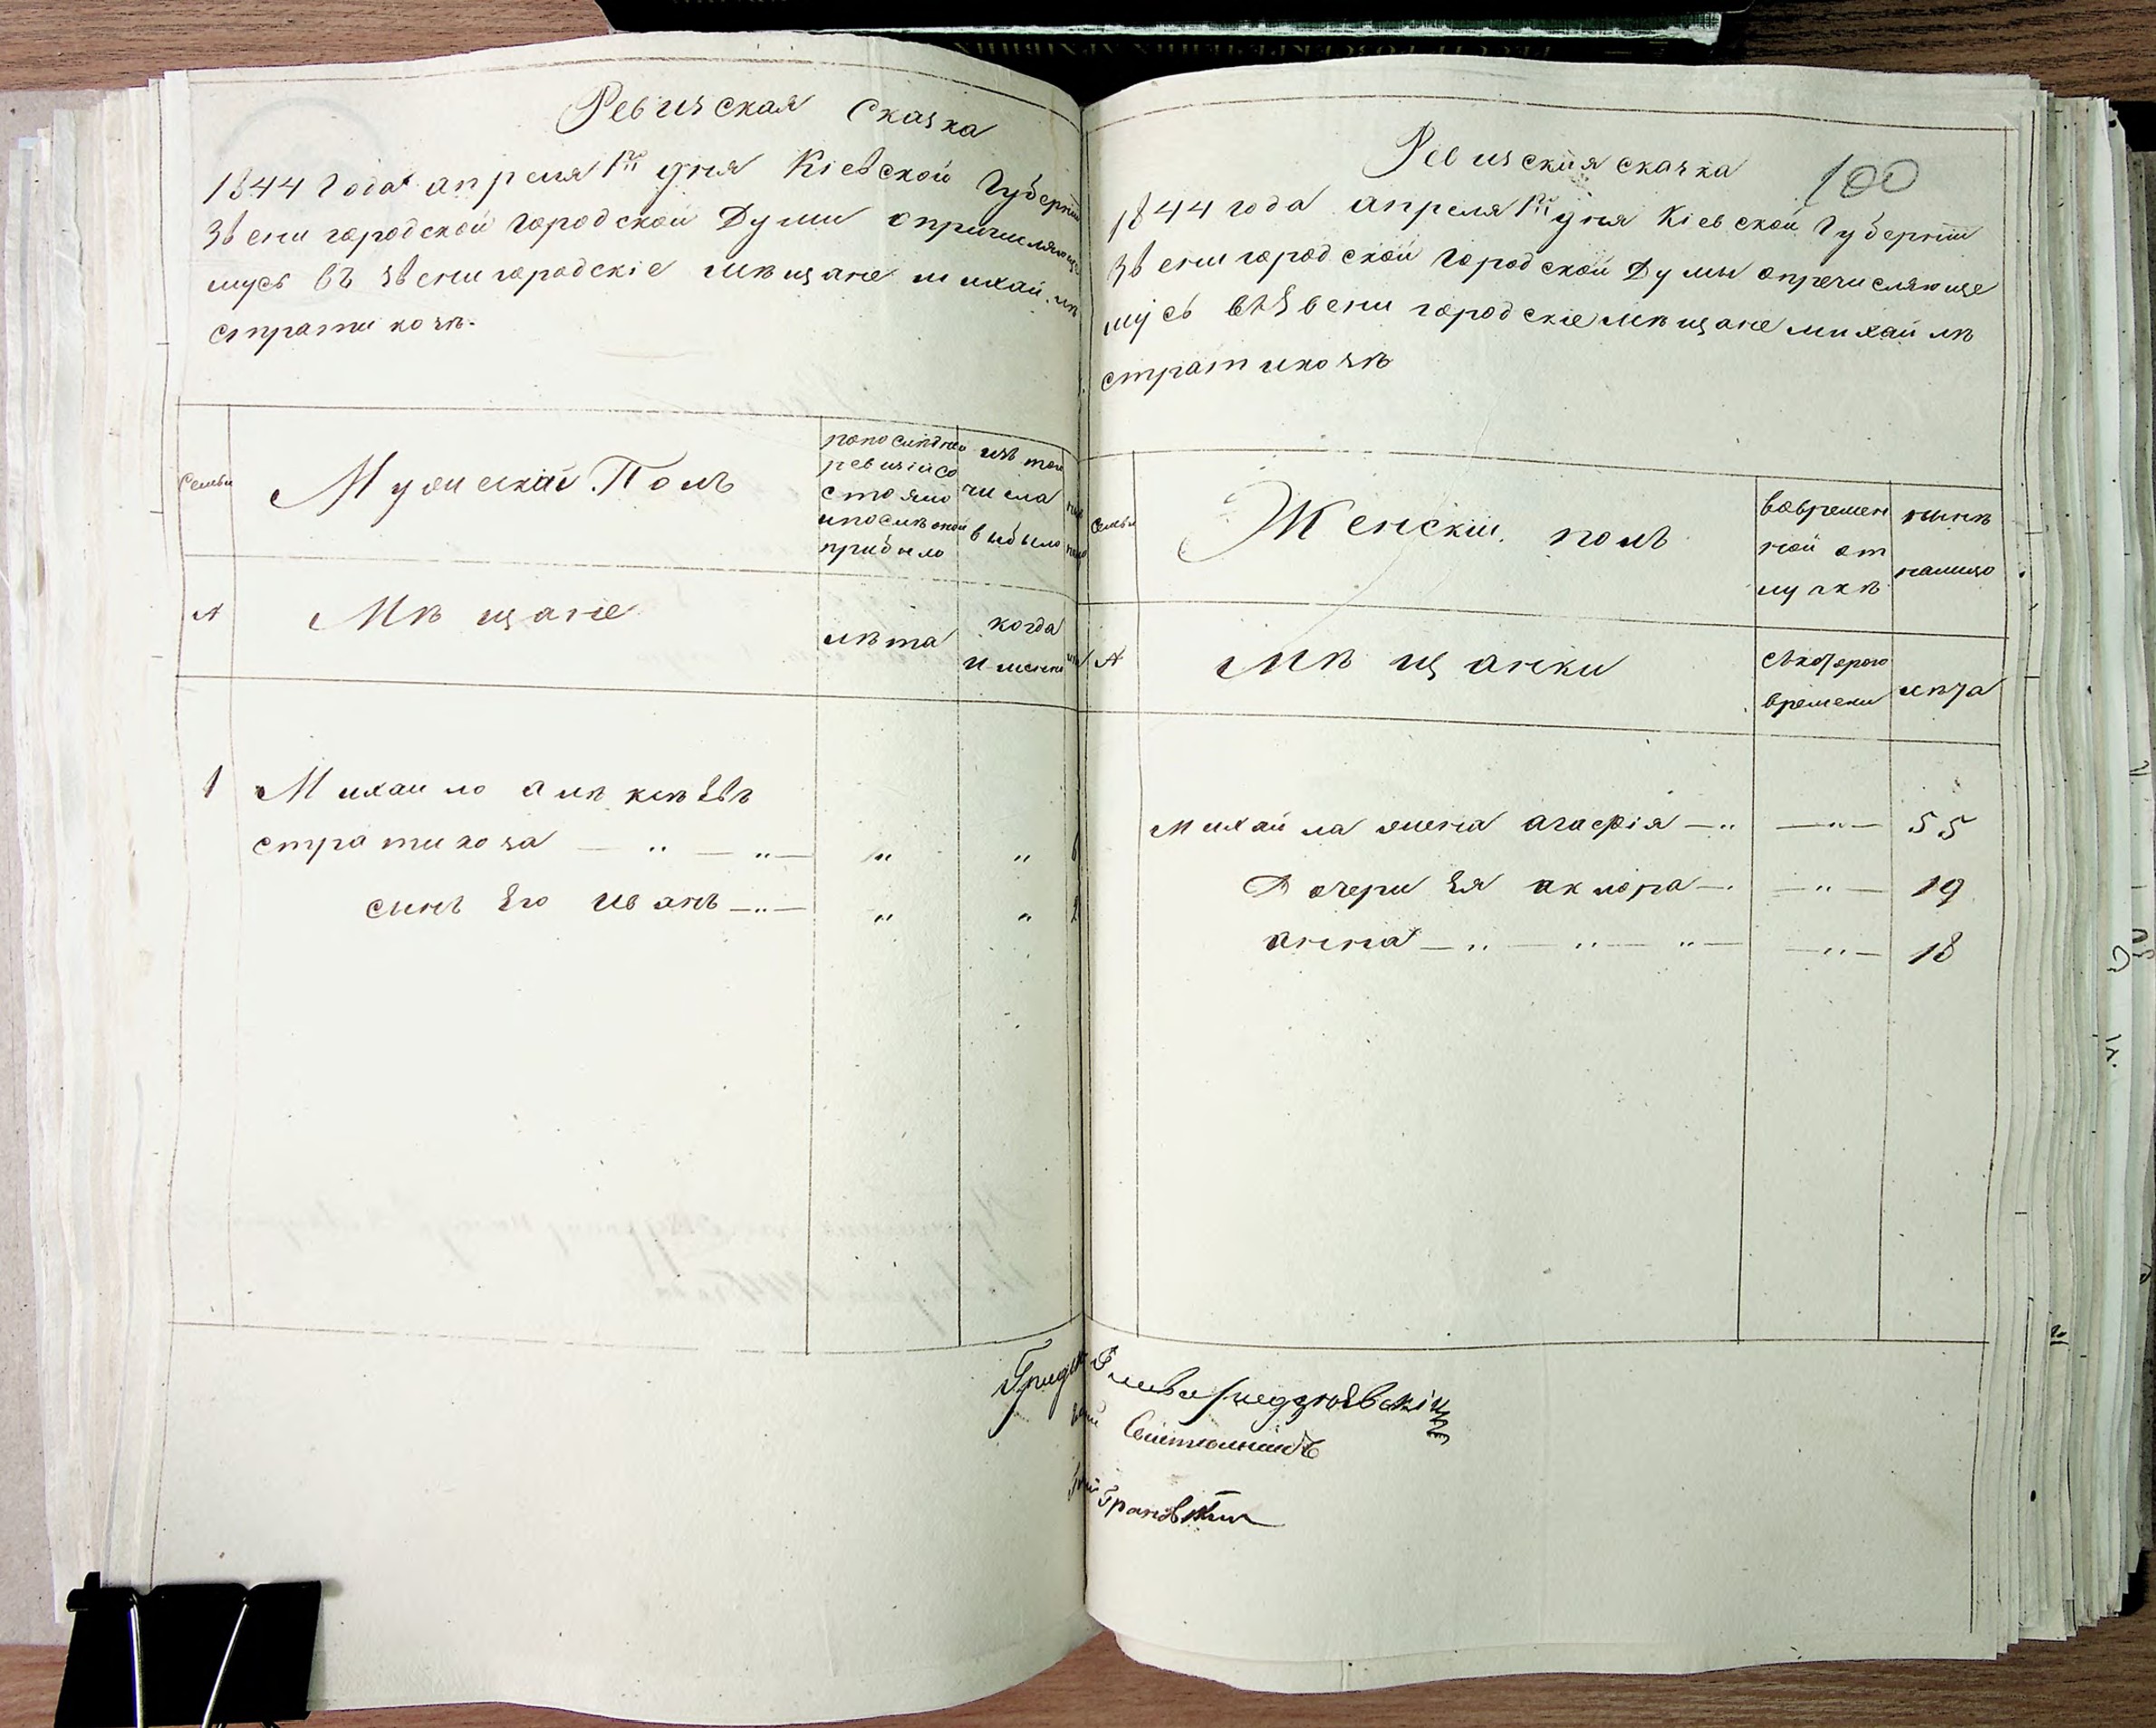 Ревизская Сказка
1844 Года апреля 1го дня Кіевской Губерніи
Звенигородской городской Думы опричисляюще
муся въ звенигородскіе мѣщане михайлѣ
стратикозѣ.
Семьи
Мужескій Полъ
попослѣдней
ревизіи со
стояло
ипослѣ оной
прибыло
изъ того
числа
выбыло
№
Мѣщане
лѣта
когда
и именно
1 Михайло алѣксѣевъ
стратикоза — „ — „ — „ „
сынъ Его иванъ — „ — „ „
Ревизская сказка
100
1844 года апреля 1го дня Кіевской Губерніи
Звенигородской городской Думы опречисляюще
муся взвенигородскіе мѣщане михайлѣ
стратикозѣ
Семьи
Женскій полъ
вовремен
ной от
лучкѣ
нынѣ
налицо
№
мѣщанки
съкоторого
времени
лѣта
михайла жена агафія — „ — „ — 55
Дочери Ея акилора — „ — „ — 19
анна — „ — „ — „ — — „ — 18
Грановскій